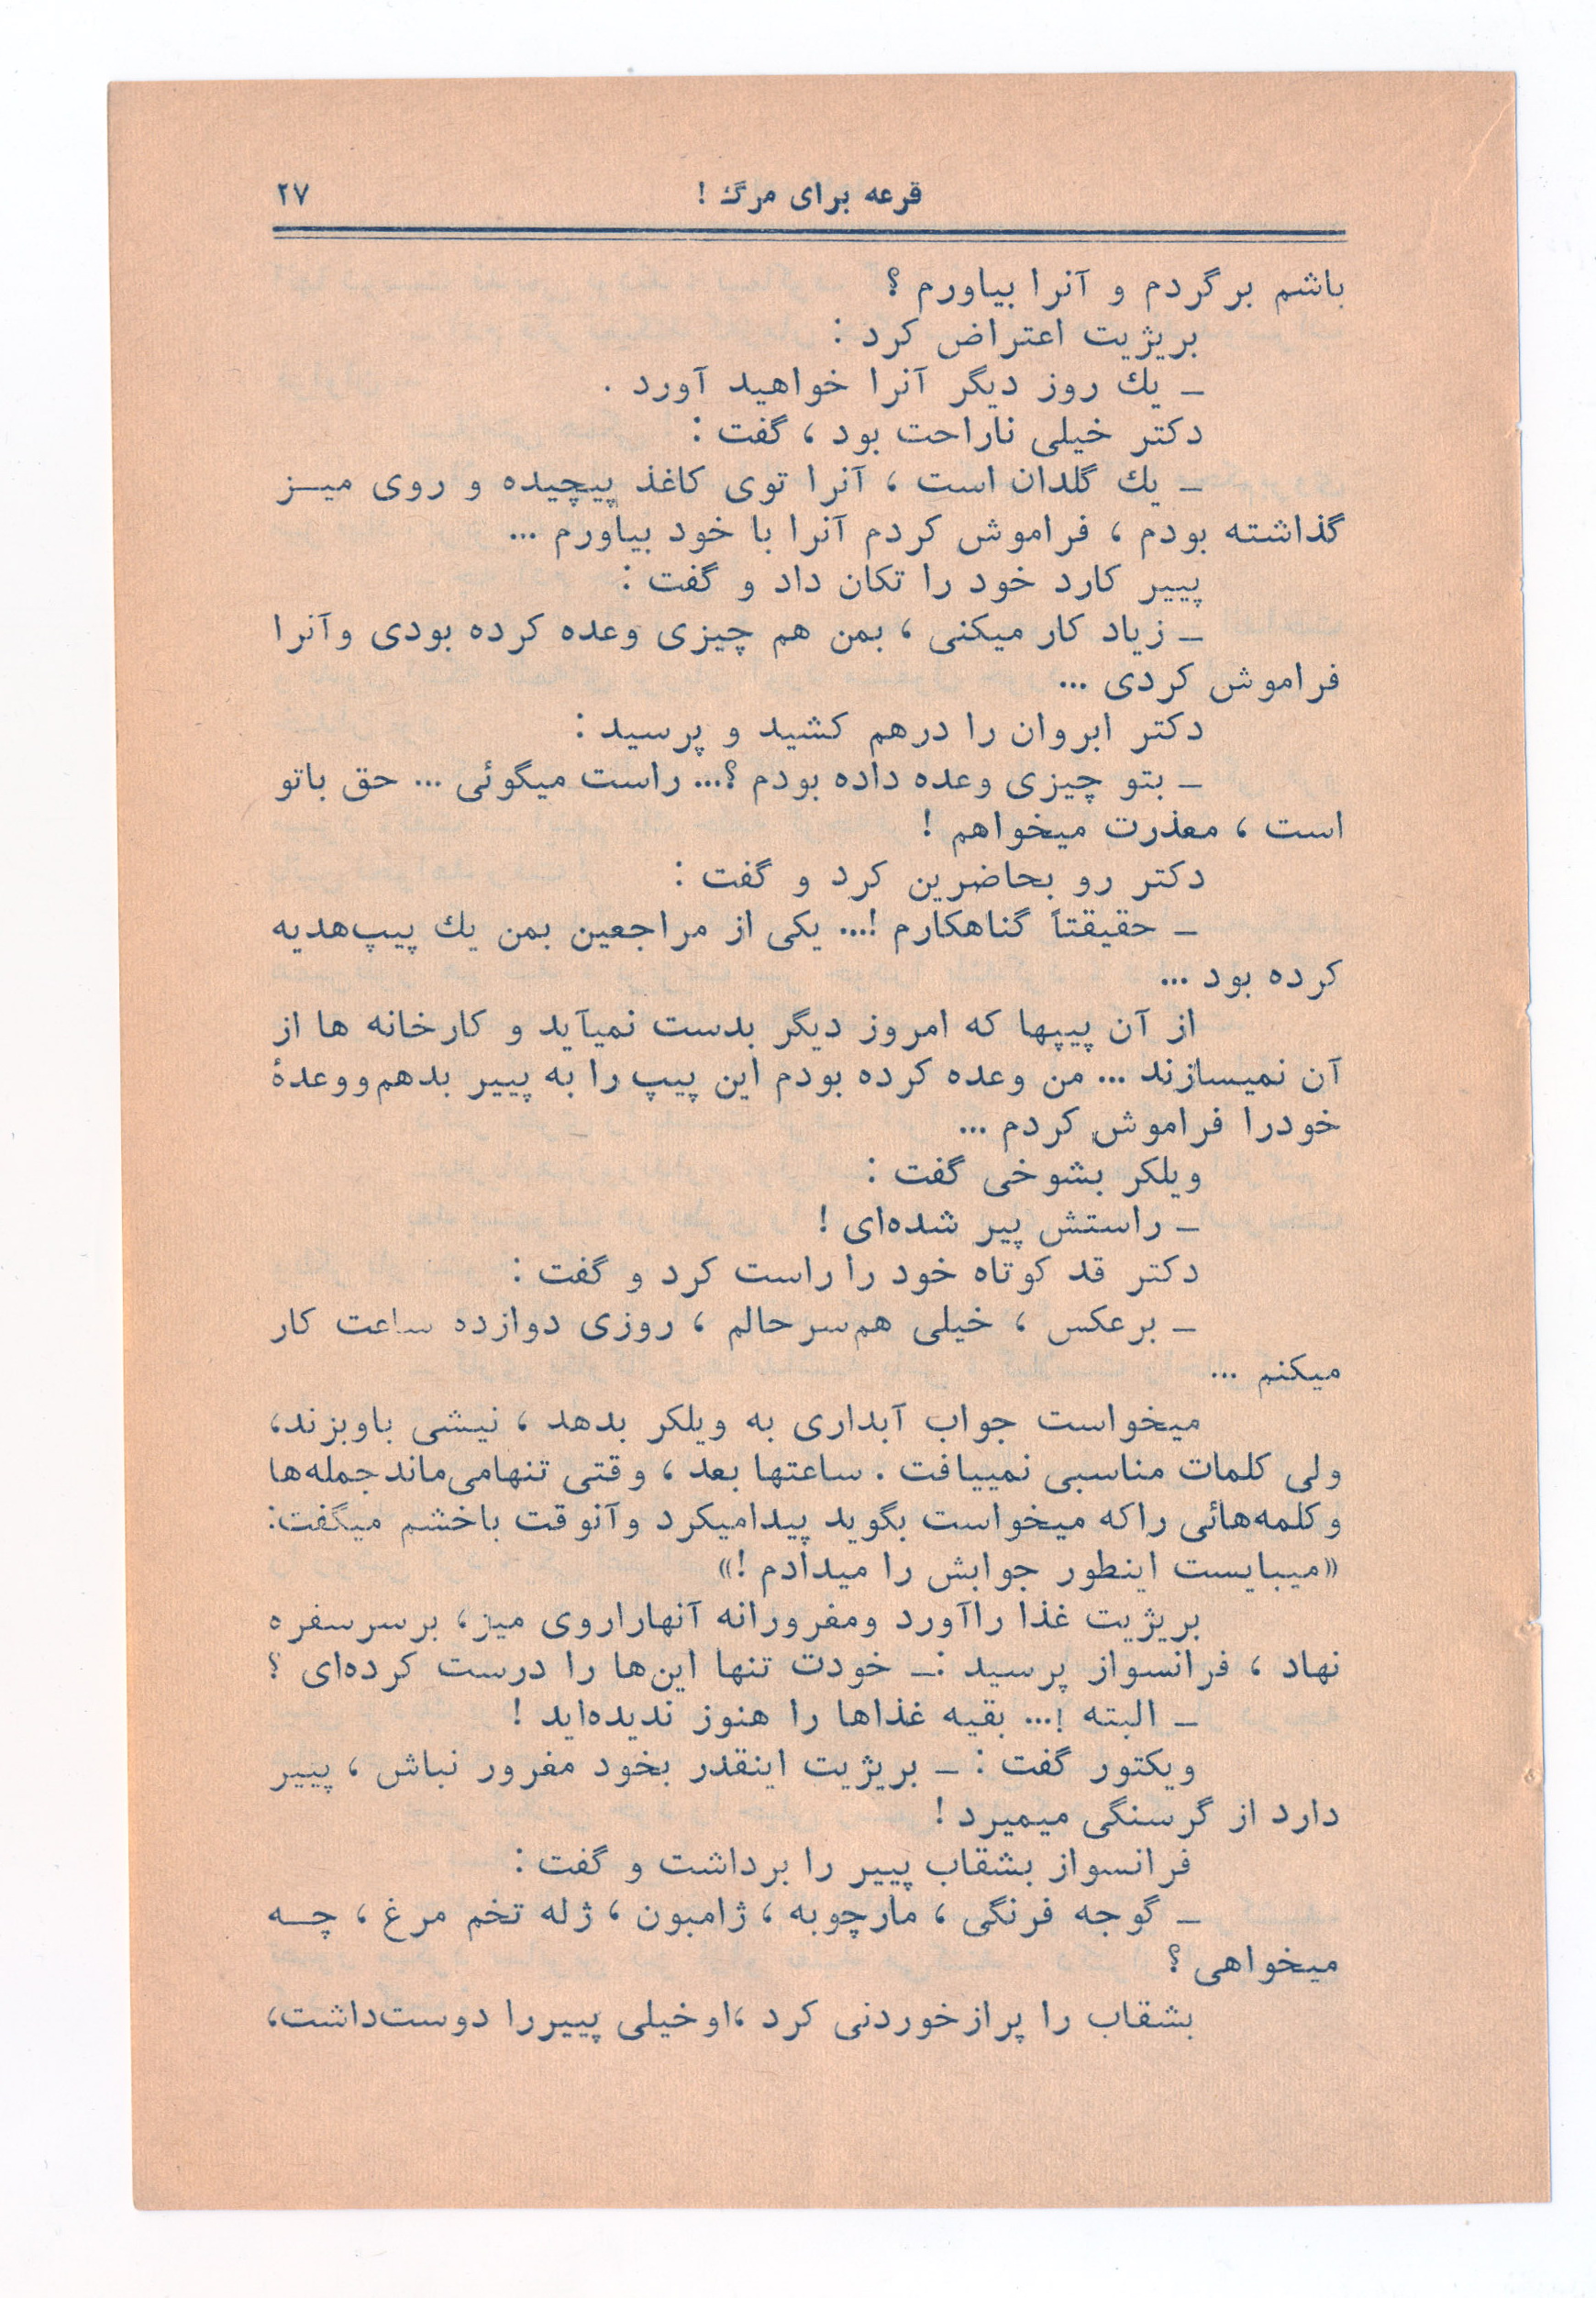 قرعه برای مرگ ! ۲۷
باشم برگردم و آنرا بیاورم ؟
بریژیت اعتراض کرد :
ـ یك روز دیگر آنرا خواهید آورد .
دکتر خیلی ناراحت بود ، گفت :
ـ یك گلدان است ، آنرا توی کاغذ پیچیده و روی میـز
گذاشته بودم ، فراموش کردم آنرا با خود بیاورم ...
پییر کارد خود را تکان داد و گفت :
ـ زیاد کار میکنی ، بمن هم چیزی وعده کرده بودی وآنرا
فراموش کردی ...
دکتر ابروان را درهم کشید و پرسید :
ـ بتو چیزی وعده داده بودم ؟... راست میگوئی ... حق باتو
است ، معذرت میخواهم !
دکتر رو بحاضرین کرد و گفت :
ـ حقیقتاً گناهکارم !... یکی از مراجعین بمن یك پیپ‌هدیه
کرده بود ...
از آن پیپها که امروز دیگر بدست نمیآید و کارخانه ها از
آن نمیسازند ... من وعده کرده بودم این پیپ را به پییر بدهم‌ووعدهٔ
خودرا فراموش کردم ...
ویلکر بشوخی گفت :
ـ راستش پیر شده‌ای !
دکتر قد کوتاه خود را راست کرد و گفت :
ـ برعکس ، خیلی هم‌سرحالم ، روزی دوازده ساعت کار
میکنم ...
میخواست جواب آبداری به ویلکر بدهد ، نیشی باوبزند،
ولی کلمات مناسبی نمییافت . ساعتها بعد ، وقتی تنهامی‌ماندجمله‌ها
وکلمه‌هائی راکه میخواست بگوید پیدامیکرد وآنوقت باخشم میگفت:
«میبایست اینطور جوابش را میدادم !»
بریژیت غذا راآورد ومغرورانه آنهاراروی میز، برسرسفره
نهاد ، فرانسواز پرسید :ـ خودت تنها این‌ها را درست کرده‌ای ؟
ـ البته !... بقیه غذاها را هنوز ندیده‌اید !
ویکتور گفت : ـ بریژیت اینقدر بخود مغرور نباش ، پییر
دارد از گرسنگی میمیرد !
فرانسواز بشقاب پییر را برداشت و گفت :
ـ گوجه فرنگی ، مارچوبه ، ژامبون ، ژله تخم مرغ ، چـه
میخواهی ؟
بشقاب را پرازخوردنی کرد ،اوخیلی پییررا دوست‌داشت،